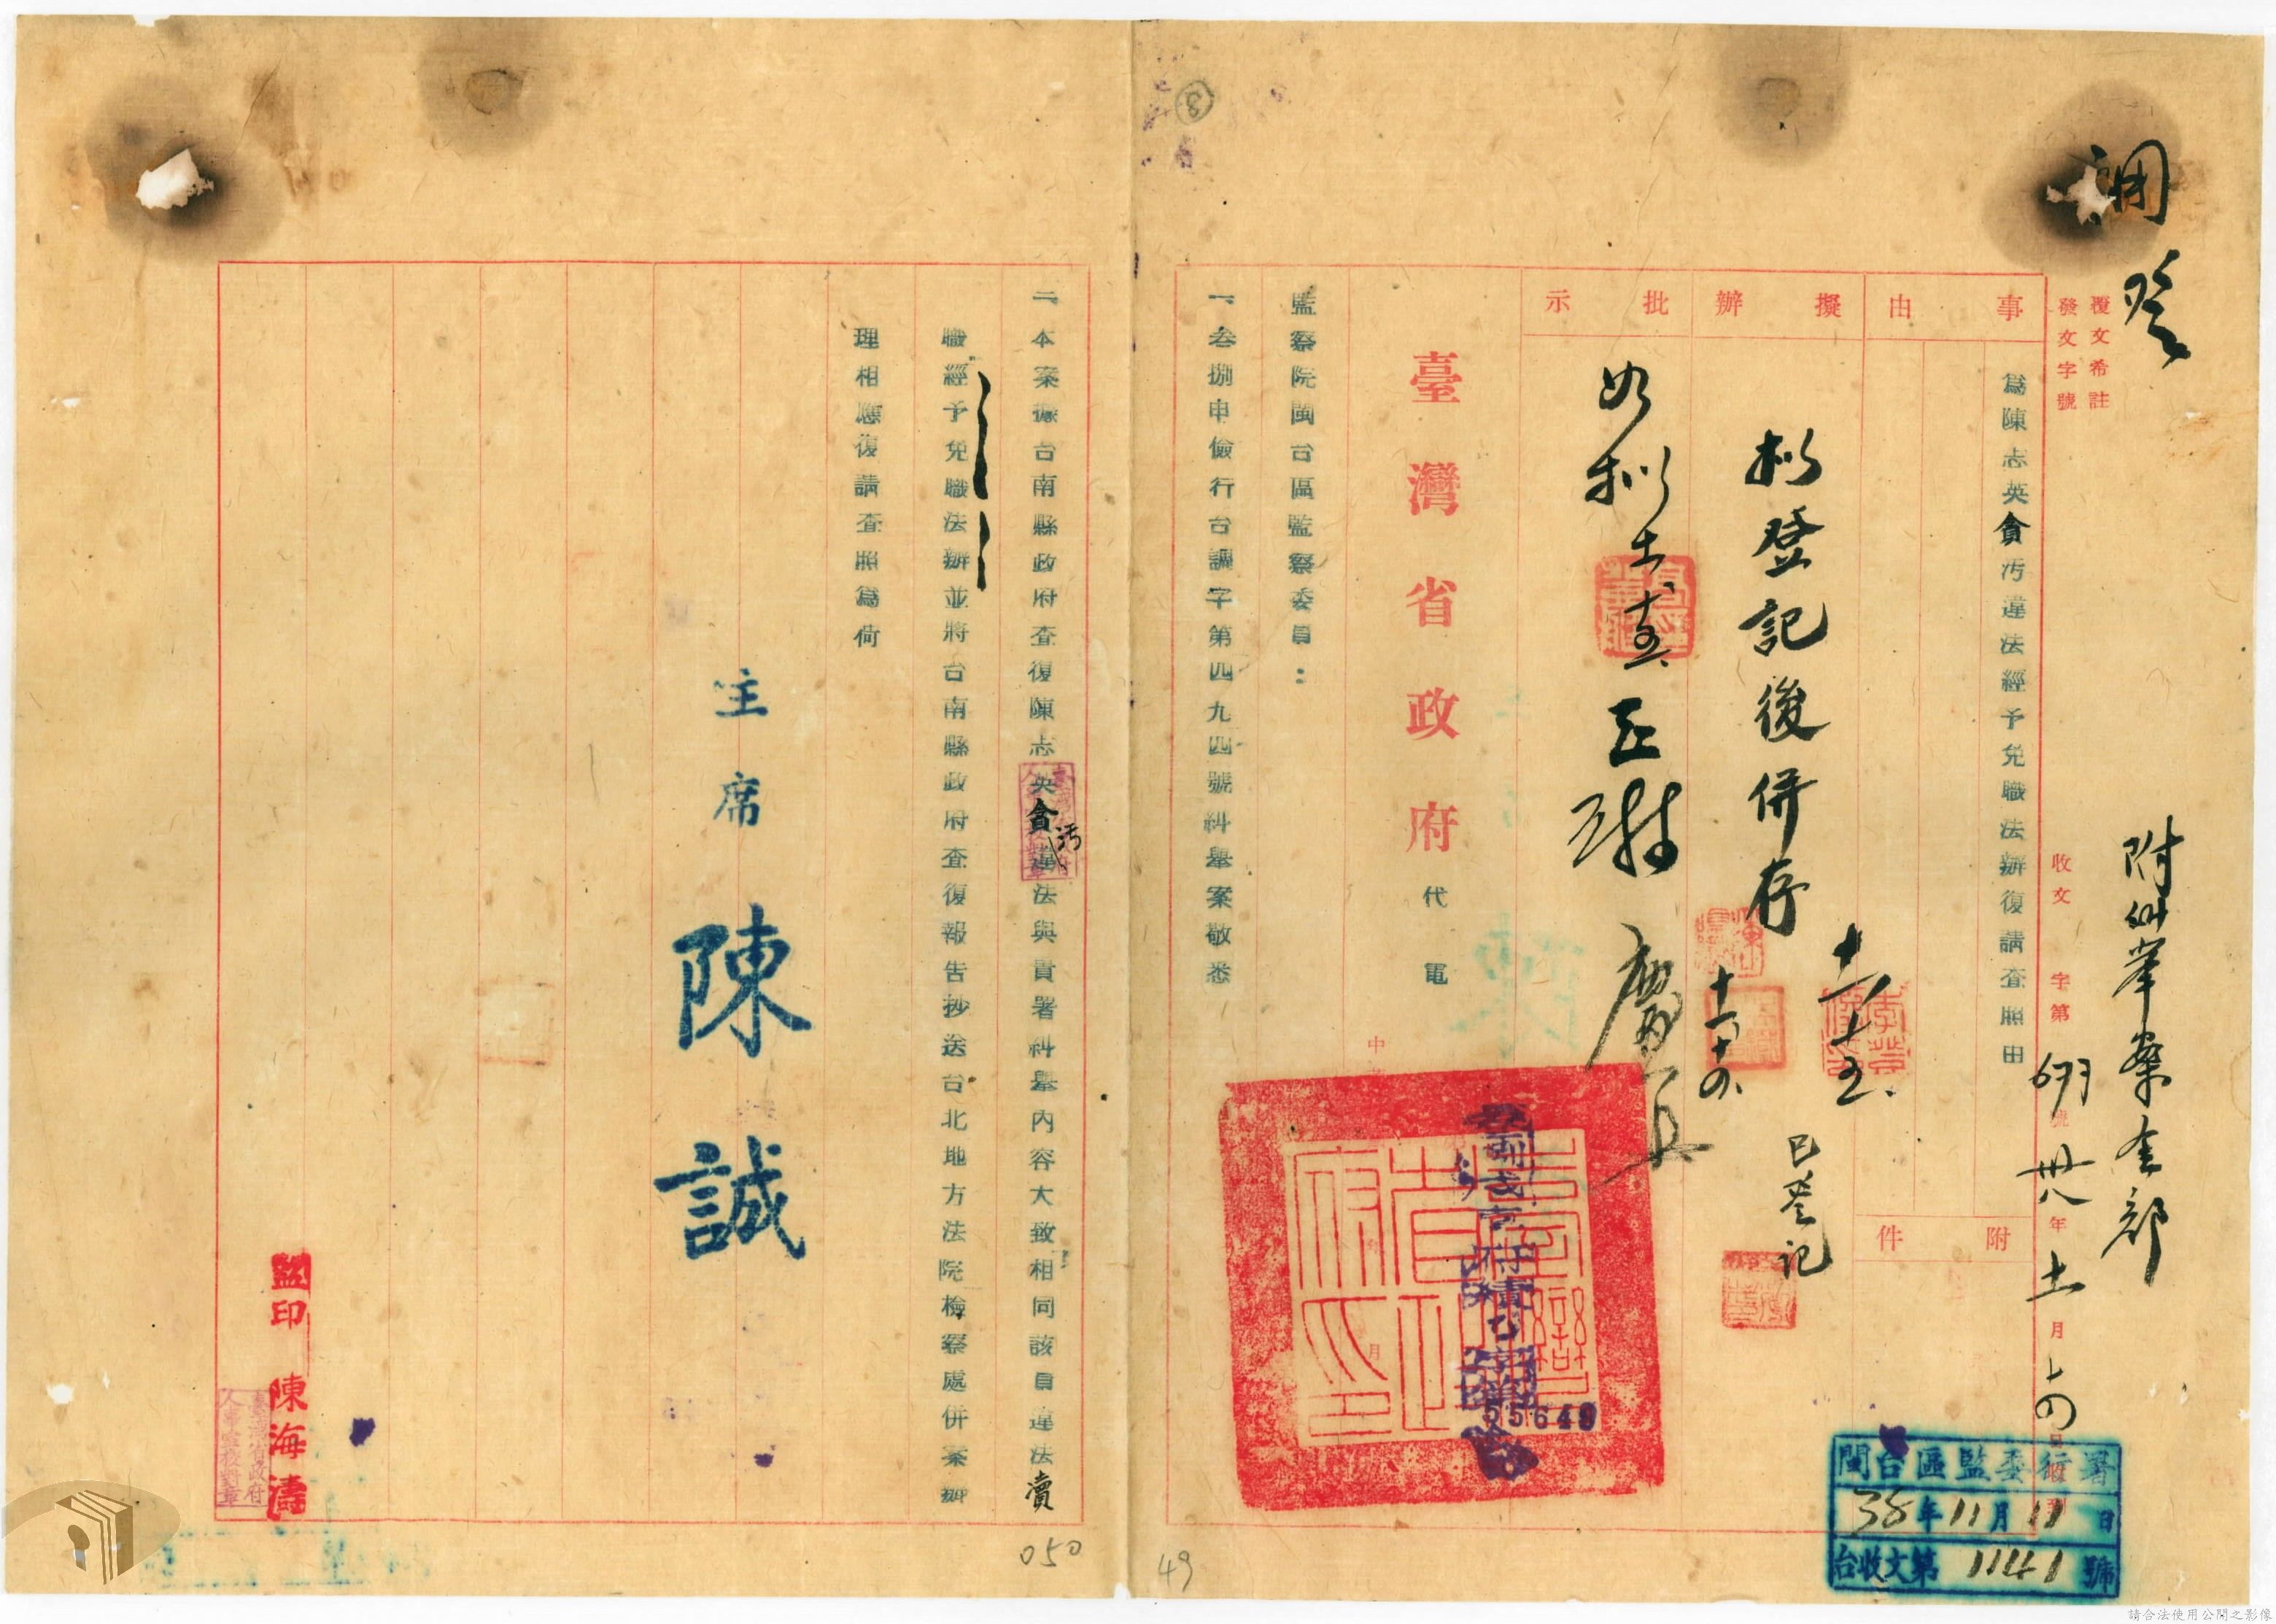 調
登
附糾舉案全部
覆文希註
發文字號
收文 字第 673 號 卅八年十一月十四日收到
事由
為陳志英貪污違法經予免職法辦復請查照由
附件
擬辦
擬登記後併存
十一 十五
十一 十四
已登記
批示
如擬
臺灣省政府代電
監察院閩台區監察委員：
一、叁捌申儉行台調字第四九四號糾舉案敬悉
55649
閩台區監委行署
38年11月11日
台收文第1141號
49
二、本案據台南縣政府查復陳志英貪污違法與貴署糾舉內容大致相同該員違法瀆
職經予免職法辦並將台南縣政府查復報告抄送台北地方法院檢察處併案辦
理相應復請查照為荷
主席 陳誠
監印 陳海濤
臺灣省政府
人事室校對章
050
請合法使用公開之影像